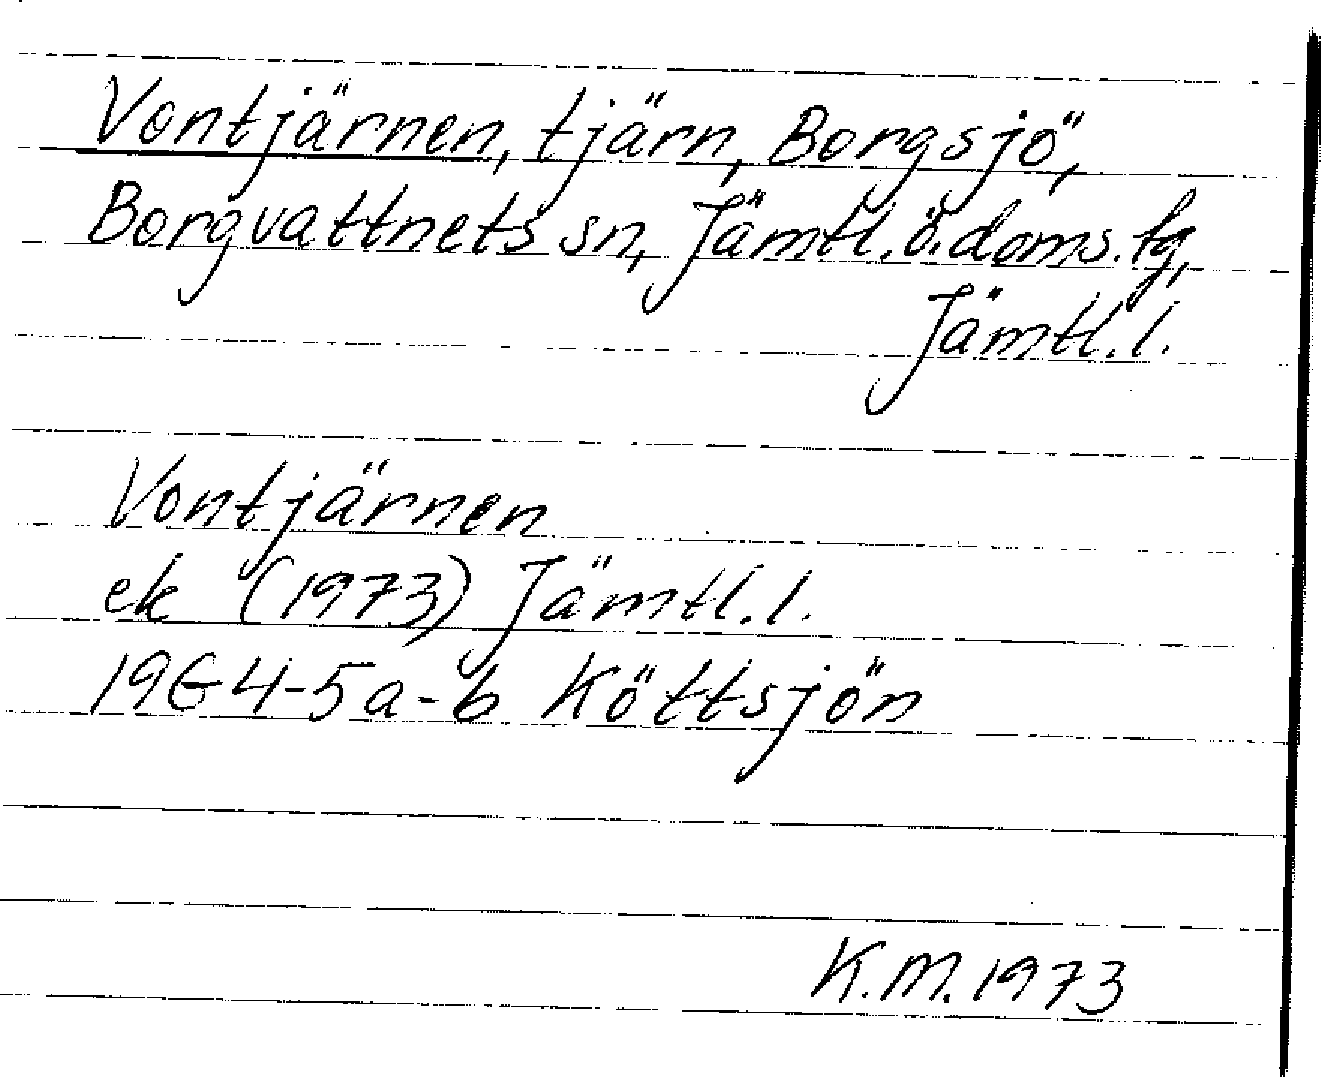 Vontjärnen, tjärn, Borgsjö,
Borgvattnets sn, Jämtl.ö.doms.tg,
Jämtl.l.
Vontjärnen
ek (1973) Jämtl.l.
19G4-5a-b Köttsjön
K.M. 1973